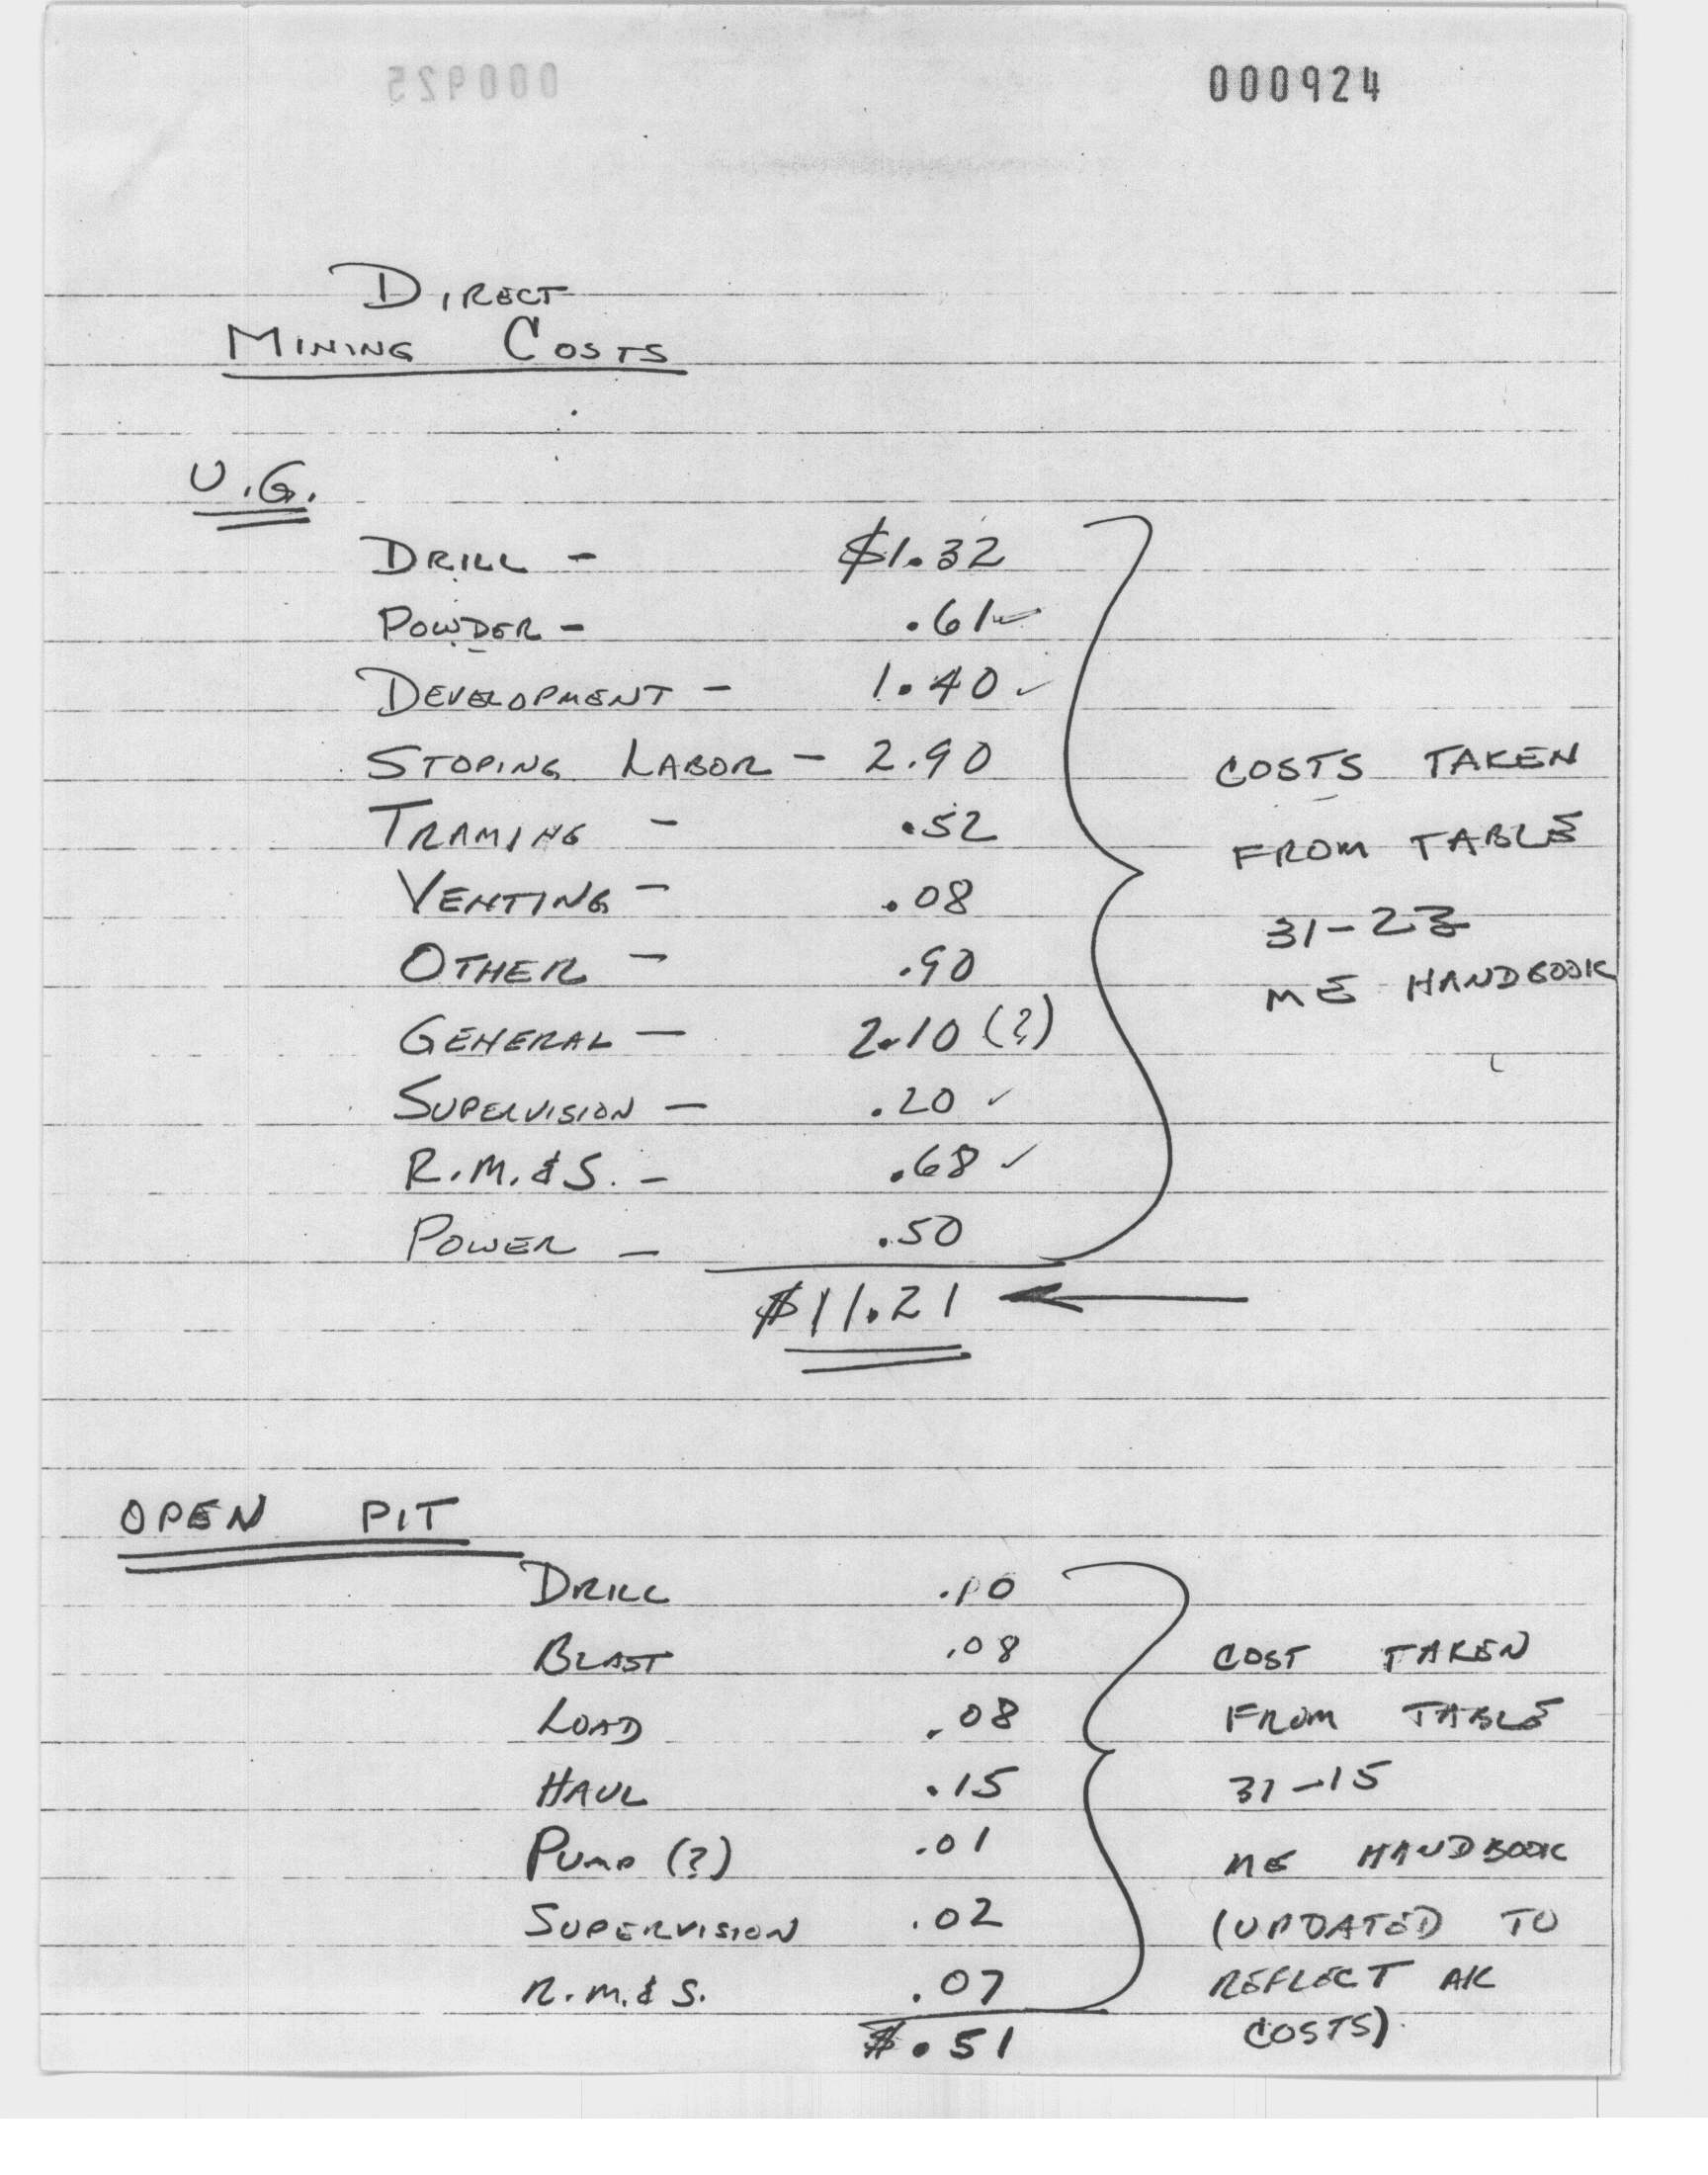 000925
000924
DIRECT
MINING COSTS
U.G.
DRILL - $1.32
POWDER - .61 ✓
DEVELOPMENT - 1.40 ✓
STOPING LABOR - 2.90
TRAMING - .52
VENTING - .08
OTHER - .90
GENERAL - 2.10 (?)
SUPERVISION - .20 ✓
R.M.&S. - .68 ✓
POWER - .50
$11.21
COSTS TAKEN
FROM TABLE
31-23
ME HANDBOOK
OPEN PIT
DRILL .10
BLAST .08
LOAD .08
HAUL .15
PUMP (?) .01
SUPERVISION .02
R.M.& S. .07
$.51
COST TAKEN
FROM TABLE
31-15
ME HANDBOOK
(UPDATED TO
REFLECT AK
COSTS)